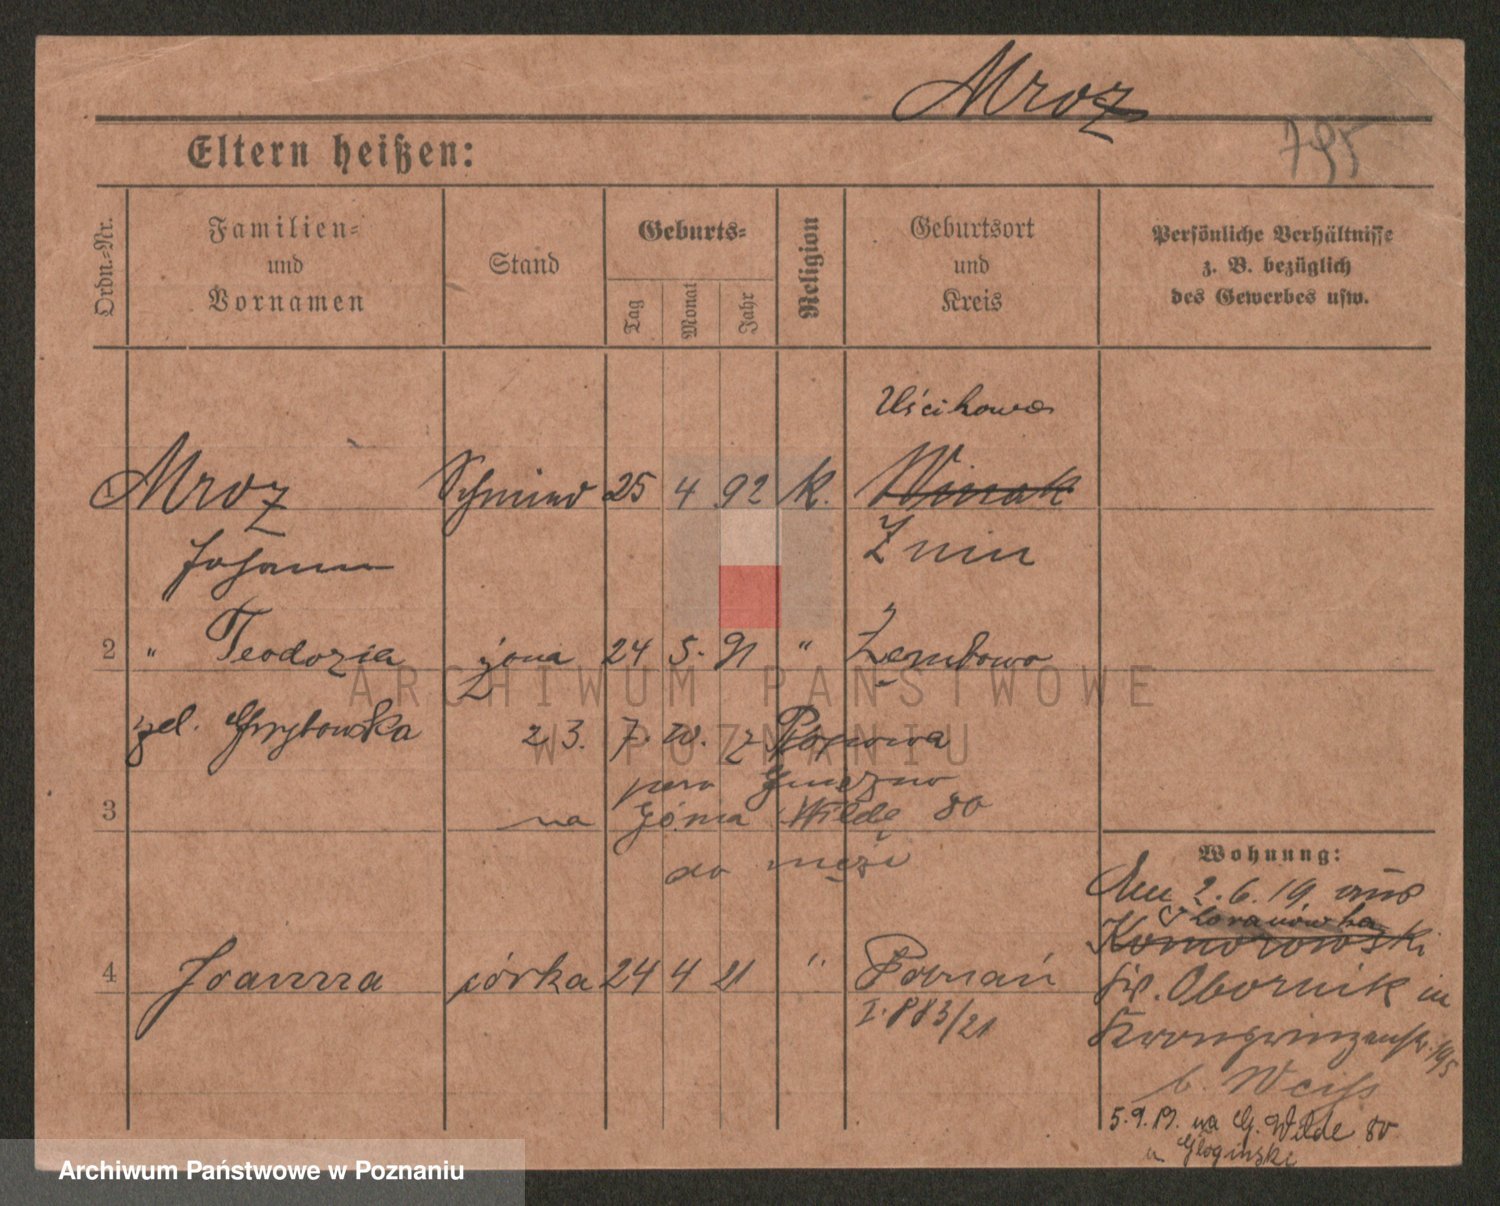 Mroz
795
Eltern heißen:
Ordn.-Nr.
Familien-
und
Vornamen
Stand
Geburts-
Tag
Monat
Jahr
Religion
Geburtsort
und
Kreis
Persönliche Verhältnisse
z. B. bezüglich
des Gewerbes usw.
Uścikowo
1 Mroz Schmied 25 4 92 k.
Johann Znin
2 " Teodozja żona 24 5. 91 " Zembowo
zel. Grzybowska 23. 7. 21. z
pow Gniezno
3 na Górna Wildę 80
do męża
Wohnung:
Am 2.6.19. aus
Komorowski
4 Joanna córka 24 4 21 " Poznań
Obornik in
I. 883/21
Kronprinzenstr. 195
b. Weiss
5.9.19. na G. Wilde 80
u
ARCHIWUM PAŃSTWOWE
W POZNANIU
Archiwum Państwowe w Poznaniu